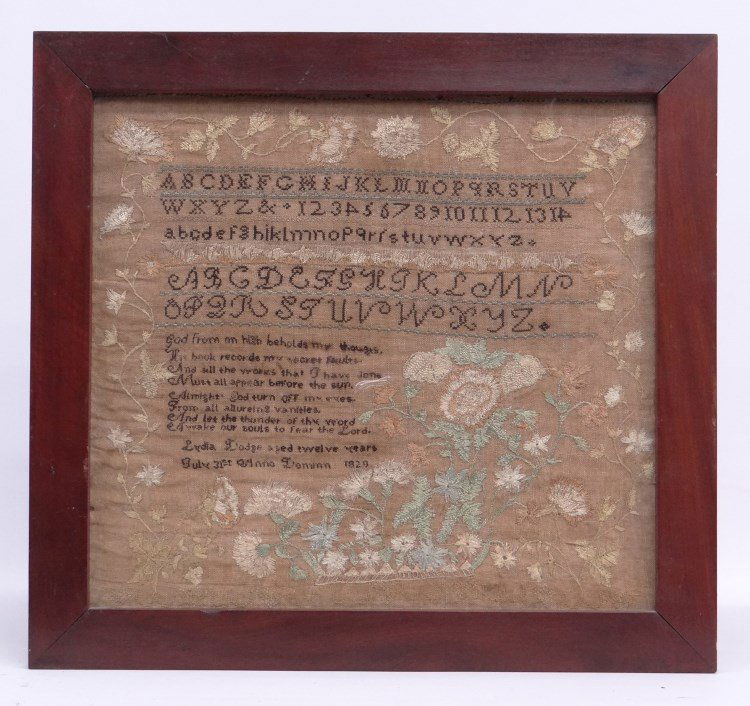 ABCDEFGHIJKLMNOPQRSTUV
WXYZ& 1234567891011121314
abcdefghijklmnopqrrstuvwxyz.
ABCDEFGHIKLMN
OPQRSTUVWXYZ.
God from on high beholds my thougts,
His book records my secret faults.
And all the works that I have done
Must all appear before the sun.
Almighty God turn off my eyes.
From all allureing vanities.
And let the thunder of thy word
Awake our souls to fear the Lord.
Lydia Dodge aged twelve years
July 31st Anno Domini 1820